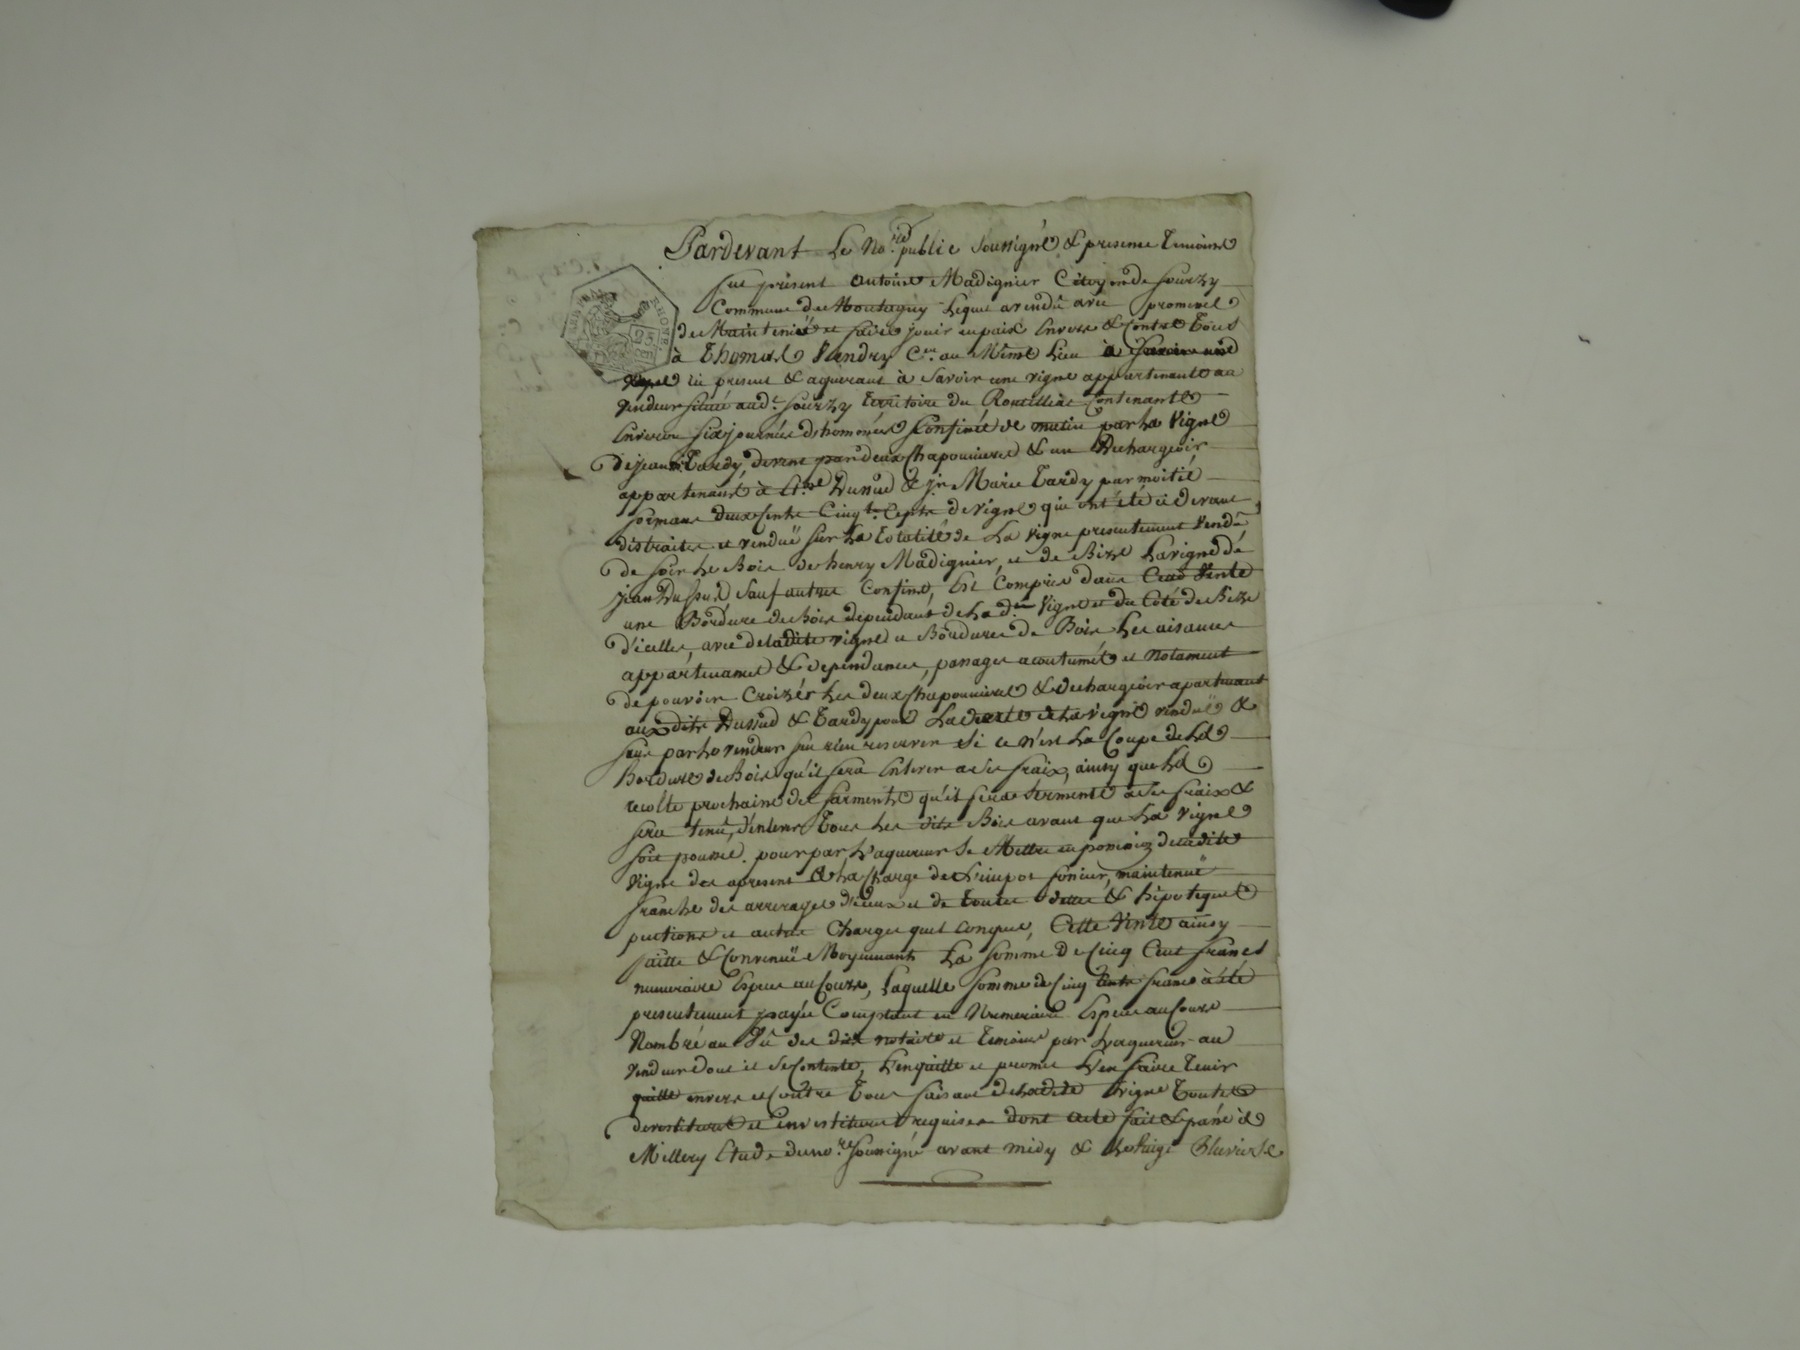 Pardevant Le No.re public soussigné & presence Temoins
fut présent Antoine Madignier Citoyen de Sourzy
Commune de Montagny lequel a vendu avec promesse
de Maintenir et faire jouir en paix Envers & Contre Tous
à Thomas Vendry C.en au Même Lieu
ici present & aquerant à Savoir une vigne appartenante au
vendeur située aud.t Sourzy Territoire du Contenante
Environ six journées d'homée Confinée de matin par La Vigne
de jean Tardy, devers par deux Chaponnieres & un Dechargeoir
appartenant à Dussud & j.n Marie Tardy par moitié
formant deux Cents Cinq.te Ceps de Vigne qui ont été ci devant
distraites et vendüe sur La Totalité de La Vigne presentement Vendüe
de soir Le Bois de henry Madignier, et de Bize La vigne de
jean Dussud sauf autres Confins, Est Compris dans Cette Vente
une Bordure de Bois dependant de La d.te Vigne et du Coté de Bize
d'icelles, avec de ladite vigne et Bordure de Bois Les aisances
appartenances & dependances, passages acoutumés et Notament
de pouvoir Croizér Les deux Chaponnieres & dechargeoir apartenant
aux dits Dussud & Tardy pour La de La vigne vendüe &
sans par Le vendeur en rien reserver Si ce n'est La Coupe de La
Bordure de Bois qu'il fera Enlever a Ses fraix, ainsy que La
recolte prochaine de Sarments qu'il fera a Ses fraix &
sera tenu, d'enlever Tous Les dits Bois avant que La Vigne
soit poussé. pour par L'aquereur Se Mettre en possession de ladite
Vigne des apresent à La Charge de L'impot foncier, maintenüe
franche des arrerages d'iceux et de toutes dettes & hipoteques
pentions et autres Charges quel Conques, Cette Vente ainsy
faitte & Convenüe Moyennant La Somme De Cinq Cent francs
numeraire Espece au Cours, Laquelle Somme de Cinq Cents francs à été
presentement payée Comptant en Numeraire Espece au Cours
Nombré au Vû des dits notaire et Temoins par L'aquereur au
Vendeur dont il Se Contente, L'en quitte et promet L'en faire Tenir
quitte envers et Contre Tous faisant de Ladite Vigne Toutes
devestitures et investitures requises dont acte fait & passé à
Millery Etude du no.re soussigné avant midy & Le Vingt Pluviose